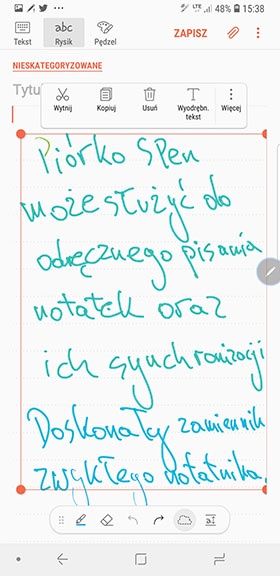 48% 15:38
Tekst
abc
Rysik
Pędzel
ZAPISZ
NIESKATEGORYZOWANE
Tytu
Wytnij
Kopiuj
Usuń
Wyodrębn. tekst
Więcej
Piórko SPen
może służyć do
odręcznego pisania
notatek oraz
ich synchronizacji
Doskonały zamiennik
zwykłego notatnika.